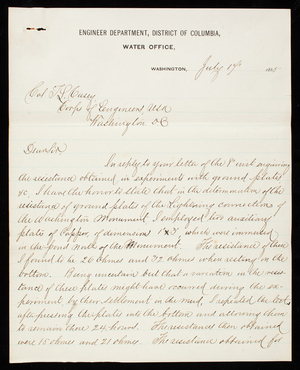 ENGINEER DEPARTMENT, DISTRICT OF COLUMBIA,
WATER OFFICE,
WASHINGTON, July 17th 188
Col T. L. Casey
Corps of Engineers, USA
Washington DC
Dear Sir
In reply to your letter of the 8" inst inquiring
the resistance obtained in experiments with ground plates
&c. I have the honor to state that in the determination of the
resistance of ground plates of the lightning connections of
the Washington Monument I employed two auxiliary
plates of Copper of dimensions which was immersed
in the pond South of the Monument. The resistance of them
I found to be 26 ohms and 92 ohms when resting on the
bottom. Being uncertain but that a variation in the resis-
tance of these plates might have occurred during the ex-
periment by their settlement in the mud, I repeated the test
after pressing the plates into the bottom and allowing them
to remain there 24 hours. The resistances then obtained
were 16 ohms and 21 ohms. The resistance obtained for